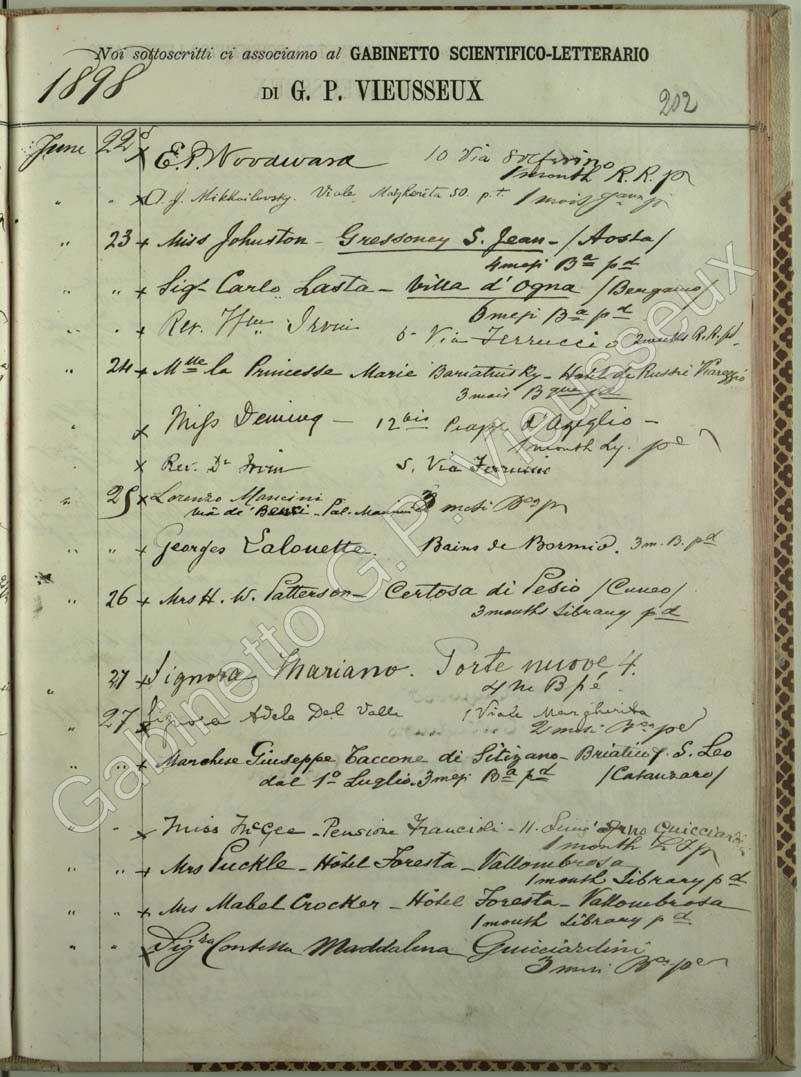 Noi sottoscritti ci associamo al GABINETTO SCIENTIFICO-LETTERARIO
1898
DI G. P. VIEUSSEUX
202
June 22d x E. P. Woodward 10 Via Solferino
1 month R. R. p
" " x A. J. Mikhailovsky. Viale Margherita 50. p. t. 1 mois
" 23 x Miss Johnston - Gressoney S. Jean - /Aosta/
4 mesi Ba pd
" " x Sigr Carlo Lasta - Villa d'Ogna /Bergamo/
6 mesi Ba pd
" " x Rev. Wm Irvin 5 Via Ferruccio 2 months R. R. pd
" 24 x Mme la Princesse Marie Bariatinsky - Hotel de Russie Viareggio
3 mois Bque pd
" x Miss Deming - 12 bis Piazza d'Azeglio -
1 month Ly. pe
x Rev. Dr Irvin 5, Via Ferruccio
" 25 x Lorenzo Mancini
via de' Benci - Pal. 3 mesi Bca p
" " x Georges Lalouette. Bains de Bormio. 3 m. B. pd
" 26 x Mrs H. W. Patterson - Certosa di Pesio /Cuneo/
3 months Library pd
" 27 x Signora Mariano. Porte nuove, 4.
4 m B pe
" 27 x Signora Adele Del Valle 1 Viale Margherita
2 mesi Bca pe
" " x Marchese Giuseppe Taccone di Sitizano - Briatico p. S. Leo
dal 1o Luglio 3 mesi Ba pd /Catanzaro/
" " x Miss McGee - Pensione Francioli - 11 Lung' Arno Guicciardini
1 month Ly p
" " x Mrs Puckle - Hôtel Foresta - Vallombrosa
1 month Library pd
" " x Mrs Mabel Crocker - Hôtel Foresta - Vallombrosa
1 month Library pd
" " x Sigra Contessa Maddalena Guicciardini
3 mesi Bca pe
Gabinetto G. P. Vieusseux